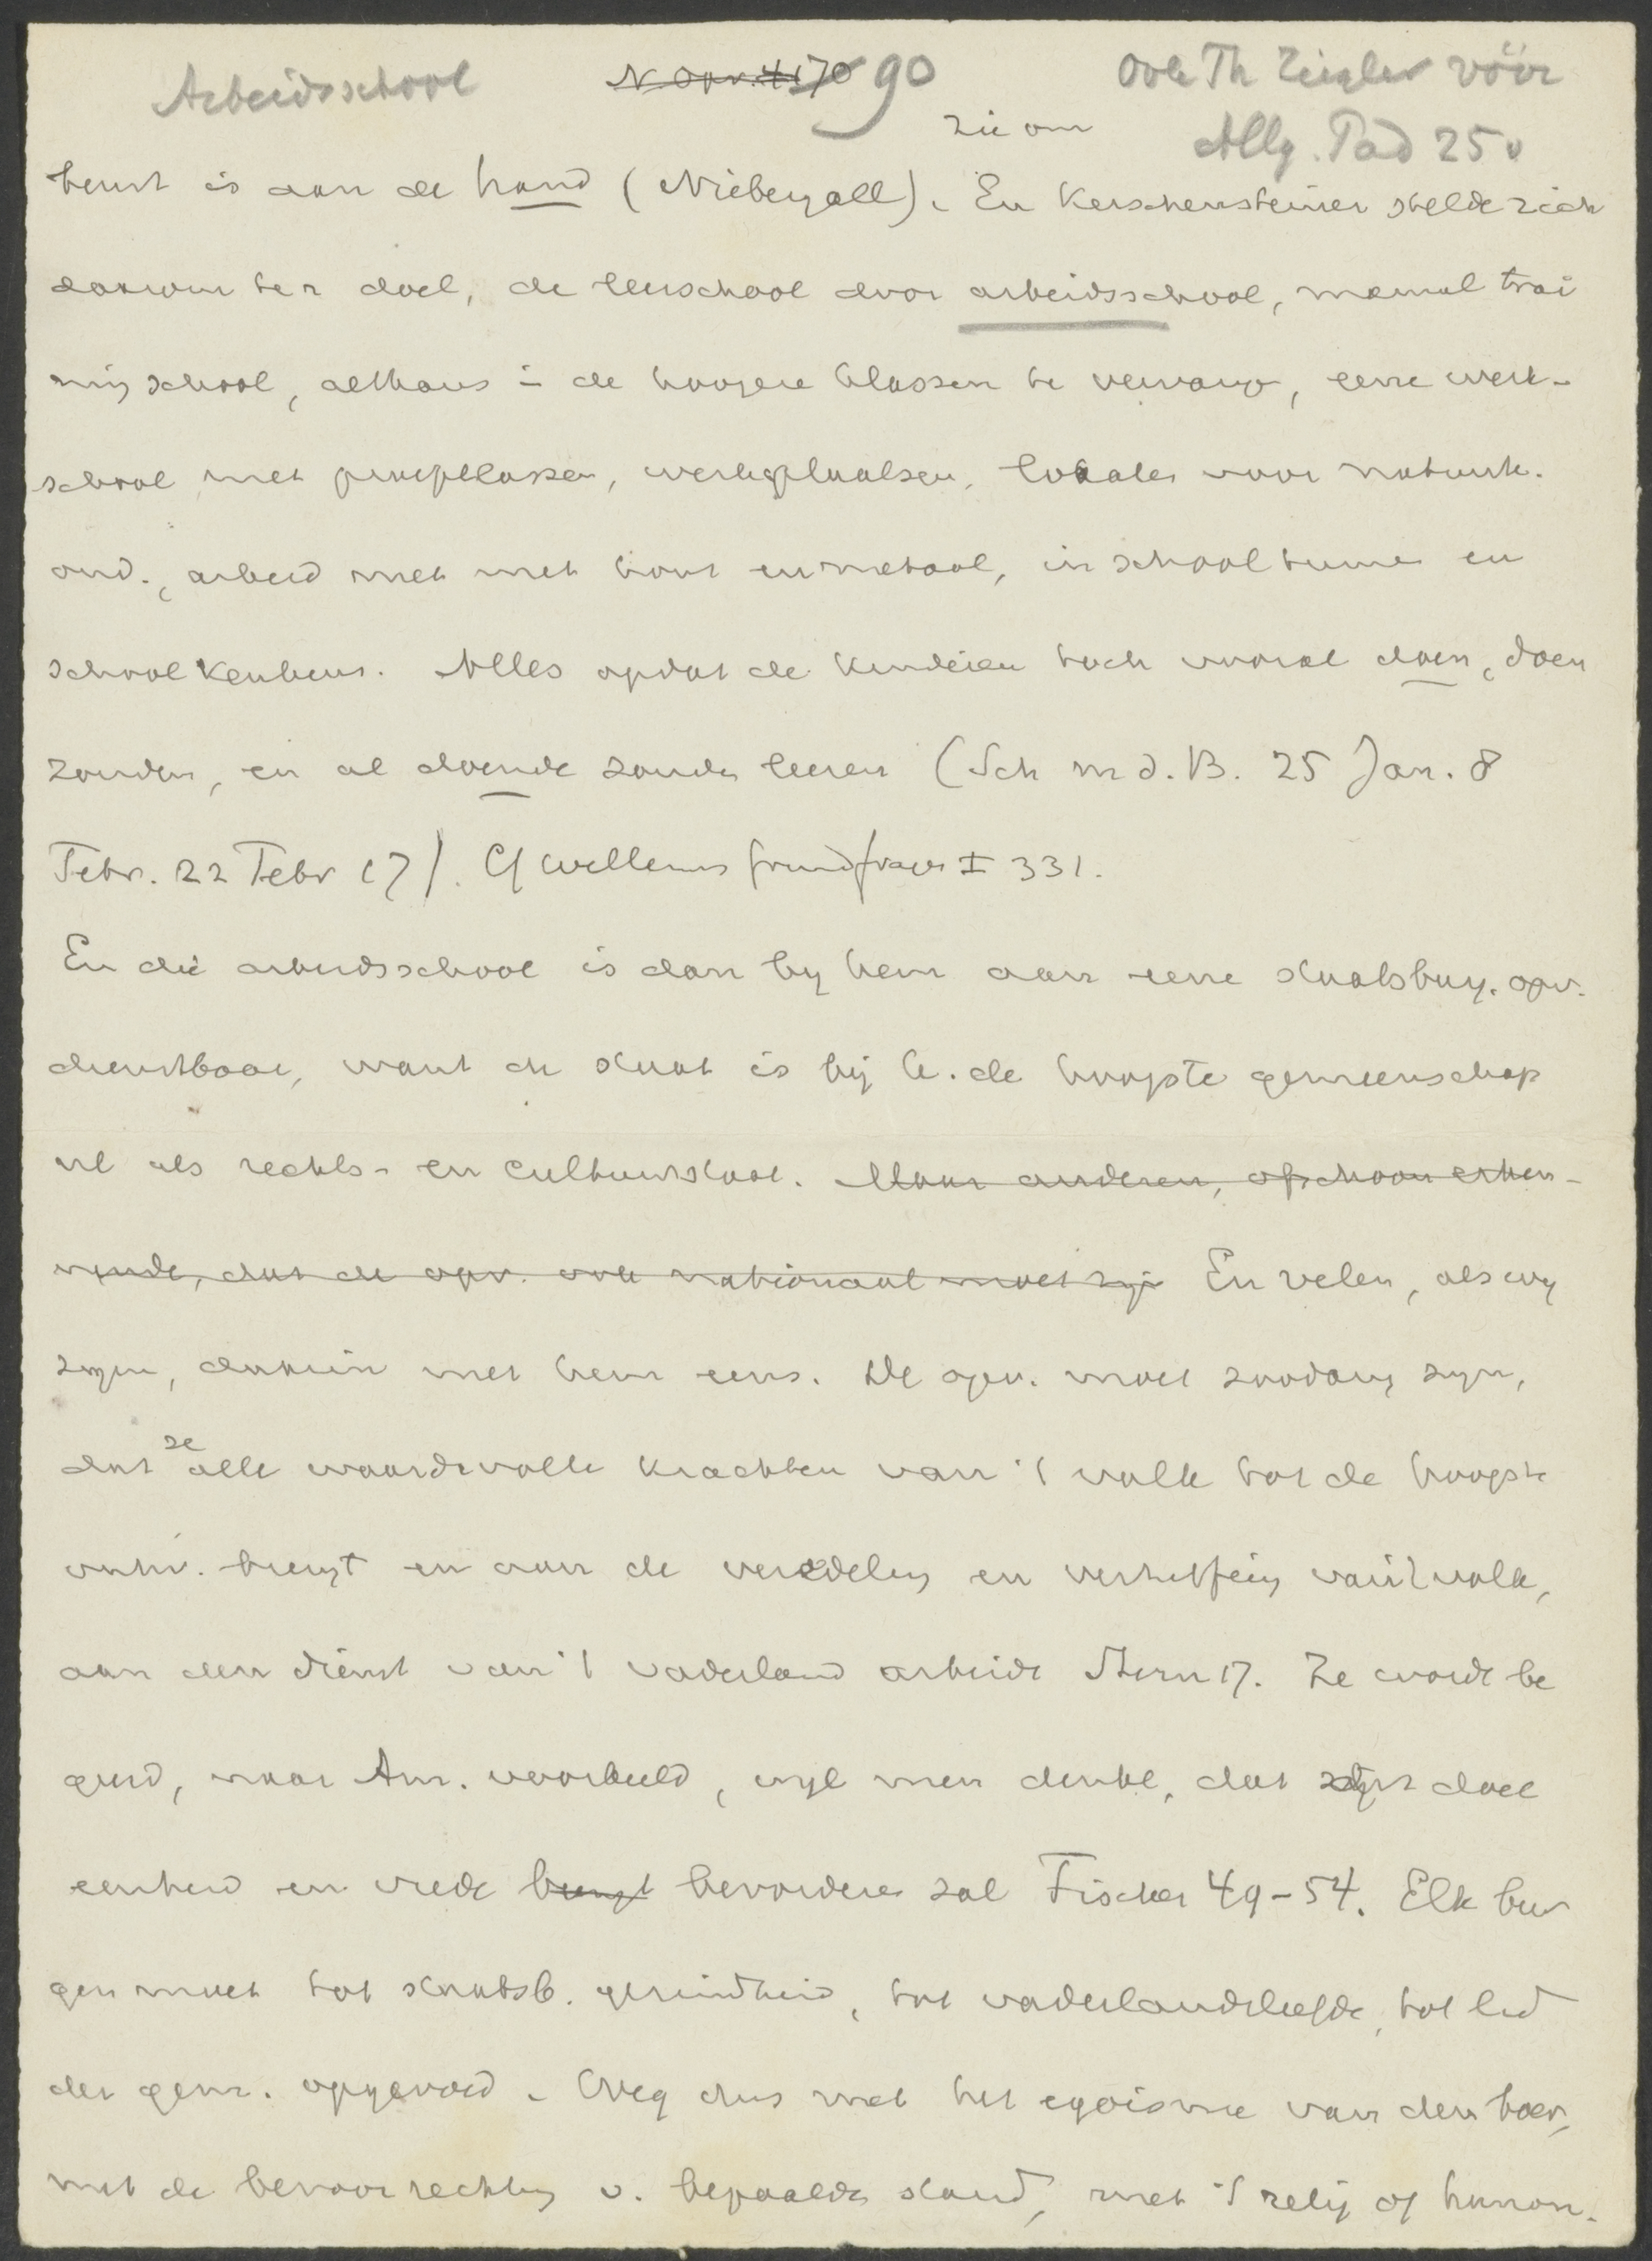 Arbeidsschool
90
Ook Th Ziegler vóór
Allg. Päd 25v
zie om
beurt is aan de hand (Niebergall). En Kerschensteiner stelde zich
daarom ten doel, de leerschool door arbeidsschool, manual trai
ning school, althans in de hoogere klassen te vervangen, eene werk-
school met proefklassen, werkplaatsen, lokalen voor natuurk.
ond., arbeid met met hout en metaal, in schooltuinen en
schoolkeukens. Alles opdat de kinderen toch vooral doen, doen
zouden, en al doende zouden leeren (Sch m d. B. 25 Jan. 8
Febr. 22 Febr 17). Cf Willems Grundfragen I 331.
En die arbeidsschool is dan by hem aan eene staatsburg. opv.
dienstbaar, want de staat is bij K. de hoogste gemeenschap
nl als rechts- en cultuurstaat. Maar anderen, ofschoon erken-
nende, dat de opv. ook nationaal moet zijn En velen, als wy
zagen, daarin met hem eens. De opv. moet zoodanig zyn,
dat ze alle waardevolle krachten van 't volk tot de hoogste
ontw. brengt en aan de veredeling en verheffing van 't volk,
aan den dienst van 't vaderland arbeide Stern 17. Ze worde be
geerd, naar Am. voorbeeld, wyl men denkt, dat doel
eenheid en vrede brengt bevorderen zal Fischer 49-54. Elk bur
ger moet tot staatsb. gezindheid, tot vaderlandsliefde, tot lid
der gem. opgevoed. Weg dus met het egoisme van den boer,
met de bevoorrechting v. bepaalde stand, met 't relig of human.